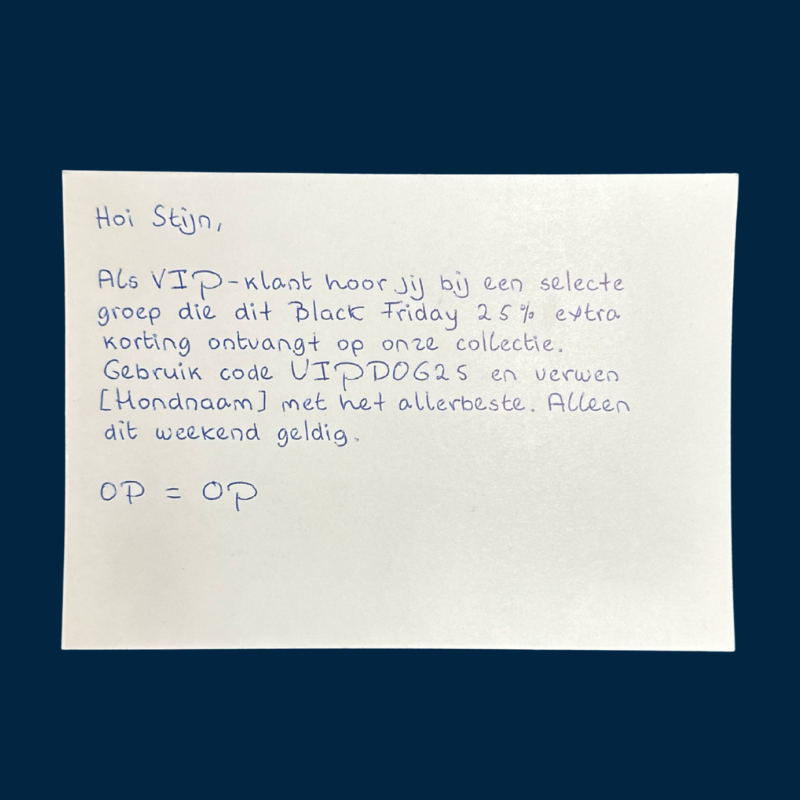 Hoi Stijn,
Als VIP-klant hoor jij bij een selecte
groep die dit Black Friday 25% extra
korting ontvangt op onze collectie.
Gebruik code VIPDOG25 en verwen
[Hondnaam] met het allerbeste. Alleen
dit weekend geldig.
OP = OP